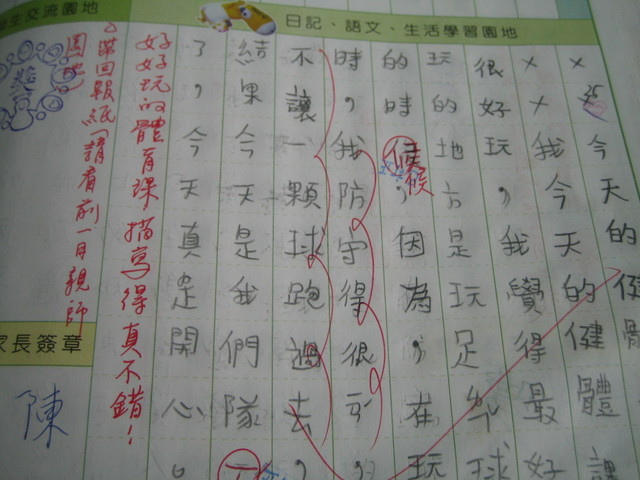 日記、語文、生活學習園地
今天的健
××我今天的健體課
很好玩,我覺得最好
玩的地方是玩足球
的時候,因為,在玩
時,我防守得很
不讓一顆球跑過去,
結果今天是我們隊
了,今天真是開心。
好好玩的體育課描寫得真不錯!
回報紙「請看前一日親師
園地
學生交流園地
家長簽章
陳